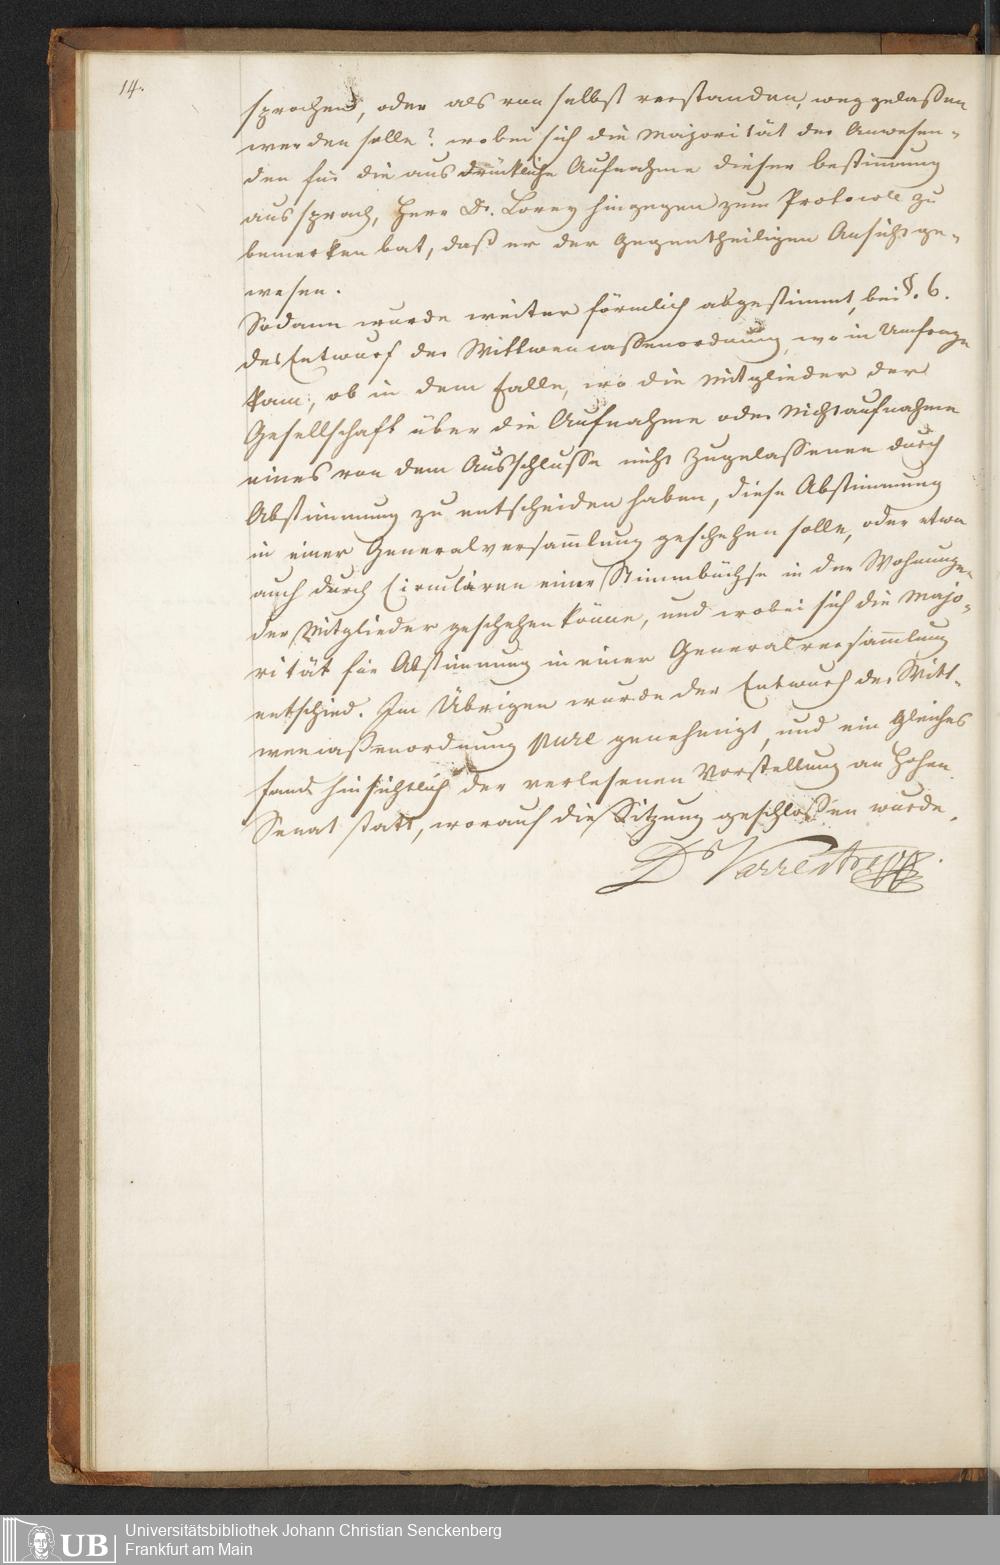 14.
sprochen, oder als von selbst verstanden, weggelaßen
werden solle? wobei sich die Majorität der Anwesen-
den für die ausdrückliche Aufnahme dieser bestimung
aussprach, Herr Dr. Lorey hingegen zum Protocoll zu
bemerken bat, daß er der gegentheiligen Ansicht ge-
wesen.
Sodann wurde weiter förmlich abgestimmt, bei §. 6.
des Entwurf der Wittwencassenordnung, wo in Umfrage
kam, ob in dem Falle, wo die Mitglieder der
Gesellschaft über die Aufnahme oder Nichtaufnahme
eines von dem Ausschlusse nicht Zugelassenen durch
Abstimmung zu entscheiden haben, diese Abstimmung
in einer Generalversamlung geschehen solle, oder etwa
auch durch Circuliren einer Stimmbüchse in den Wohnungen
der Mitglieder geschehen könne, und wobei sich die Majo-
rität für Abstimung in einer Generalversamlung
entschied. Im Übrigen wurde der Entwurf der Witt-
wencaßenordnung pure genehmigt, und ein Gleiches
fand hinsichtlich der verlesenen Vorstellung an Hohen
Senat statt, worauf die Sitzung geschloßen wurde.
Dr Varrentrapp.
UB
Universitätsbibliothek Johann Christian Senckenberg
Frankfurt am Main